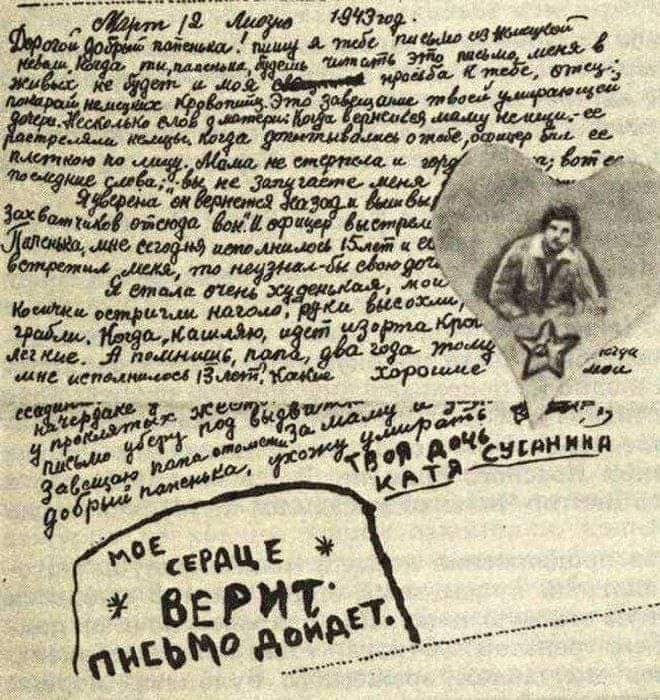 Март 12 Лиозно 1943 год.
Дорогой добрый папенька! пишу я тебе письмо из Немецкой
неволи. Когда ты, папенька, будешь читать это письмо, меня в
живых не будет и моя просьба к тебе, отец:
покарай немецких кровопийц. Это завещание твоей умирающей
дочери. Несколько слов о матери: Когда вернешься маму не ищи.- ее
растреляли немцы. Когда допытывались о тебе, офицер бил ее
плеткою по лицу. Мама не стерпела и горд ; вот ее
последние слова; "вы не запугаете меня
Я уверена он вернется назад и вышвы
Захватчиков отсюда вон". И офицер выстрел
Папенька, мне сегодня исполнилось 15 лет и ес
встретил меня, то неузнал-бы свою доч
Я стала очень худенькая, мои
Косички остригли наголо, руки высохли,
грабли. Когда, кашляю, идет изорта кро
легкие. А помнишь, папа, два года тому когда
мне исполнилось 13 лет? Какие хорошие мои
ссадин
на чердаке
у проклятых жест
письмо уберу под выдви
Завещаю папа отомсти за маму и
добрый папенька, ухожу умирать
ТВОЯ ДОЧЬ
КАТЯ СУСАНИНА
МОЕ
СЕРДЦЕ
ВЕРИТ.
ПИСЬМО ДОЙДЕТ.